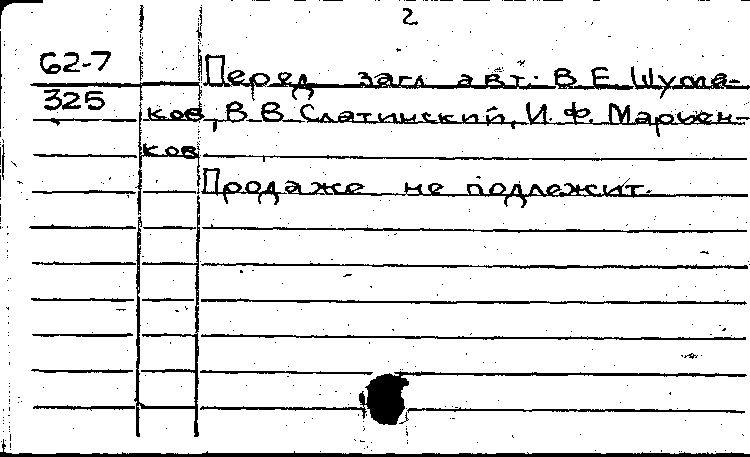 2
62-7 Перед загл авт.: В Е Шума-
325 ков, В В Слатинский, И. Ф. Марьен-
ков
Продаже не подлежит.